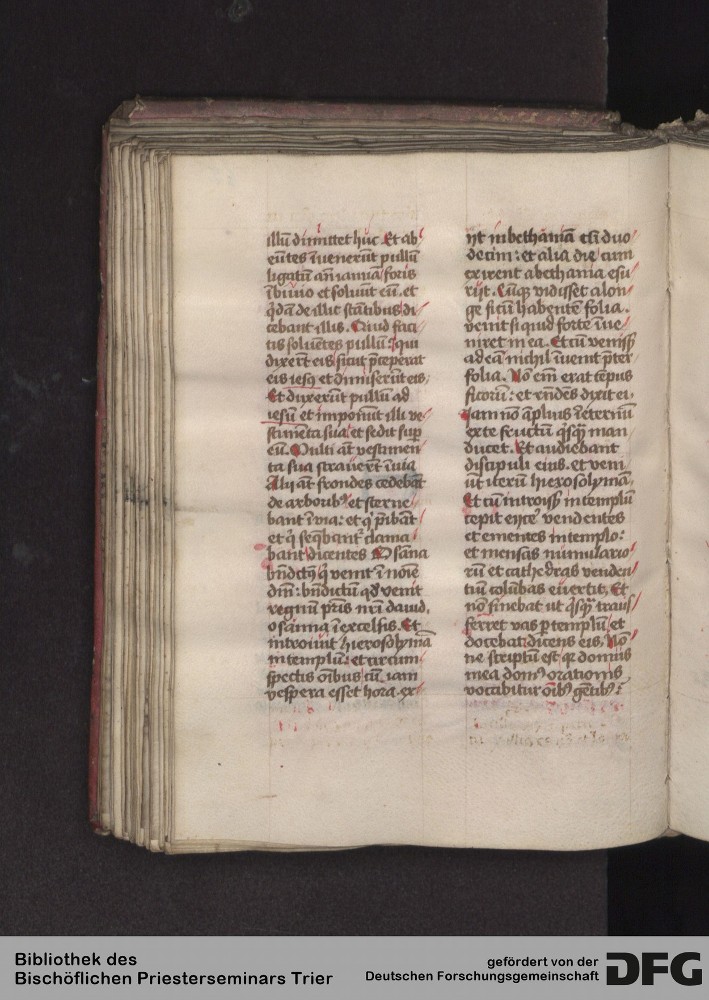 illū dimittet huc. Et ab
eūtes īuenerūt pullū
ligatū an̄ ianuā foris
ī biuio et soluūt eū. et
q̇dā de illic stātibus di
cebant illis. Quid faci
tis soluētes pullū? qui
dixert̄ eis sicut p̄ceperat
eis iesꝯ et dimiserūt eis.
Et duxerūt pullū ad
iesū et imponūt illi ve
stimēta sua. et sedit sup̄
eū. Multi at̄ vestimen
ta sua strauert̄ ī uia
Alij at̄ frondes cedebāt
de arboribꝯ et sterne
bant ī via: et q̇ p̄ibāt
et q̇ seq̄bant̄ clama
bant dicentes Osāna
bn̄dictꝯ q̇ venit ī noīe
dnī: bn̄dictū qd̄ venit
regnū p̄ris nr̄i dauid,
osanna ī excelsis. Et
introiuit hierosolymā
in templū: et circum
spectis oībus cū iam
vespera esset hora. ex
ijt in bethaniā cū duo
decim: et alia die cum
exirent a bethania esu
rijt. Cūqꝫ vidisset a lon
ge ficū habentē folia.
venit si quid forte īue
niret in ea. Et cū veniss̄
ad eā nichil īuenit p̄ter
folia. Nō em̄ erat tēpus
ficorū: et rn̄des dixit ei.
Iam nō āplius ī eternū
ex te fructū q̇sqꝫ man
ducet. Et audiebant
discipuli eius. et veni
ūt iterū hierosolymā.
Et cū introiss̄ in templū
cepit eijce᷑ vendentes
et ementes in templo:
et mensas numulario
rū et cathedras venden
tiū colūbas euertit. Et
nō sinebat ut q̇sqꝫ trans
ferret vas p̱ templū. et
docebat dicens eis. Nō
ne scriptū est. qꝛ domus
mea domꝯ orationis
vocabitur oībꝯ gētibꝯ?
Bibliothek des
Bischöflichen Priesterseminars Trier
gefördert von der
Deutschen Forschungsgemeinschaft DFG